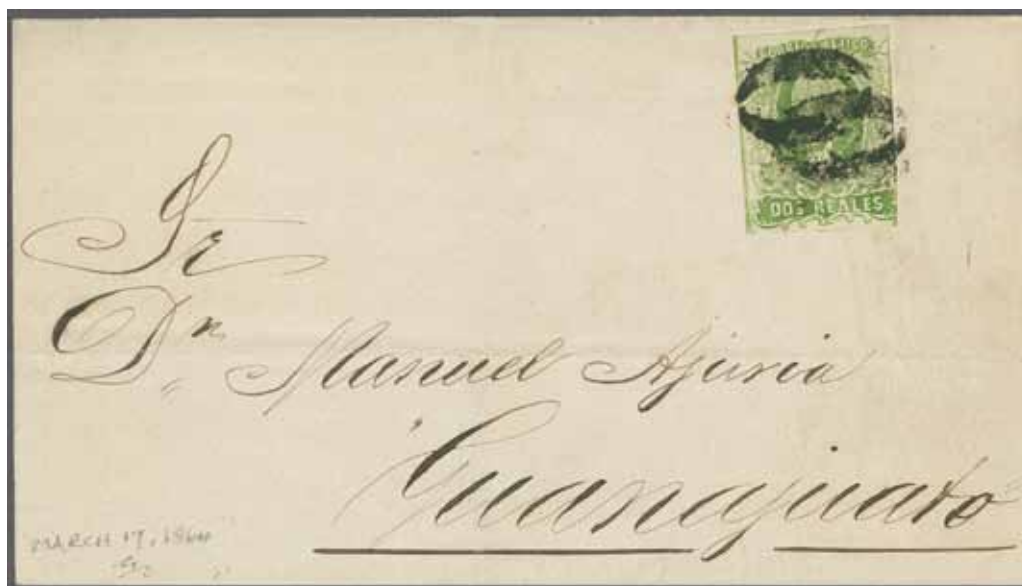 CORREOS MEJICO
DOS REALES
Sr
Dn Manuel Ajuria
Guanajuato
MARCH 17, 1864